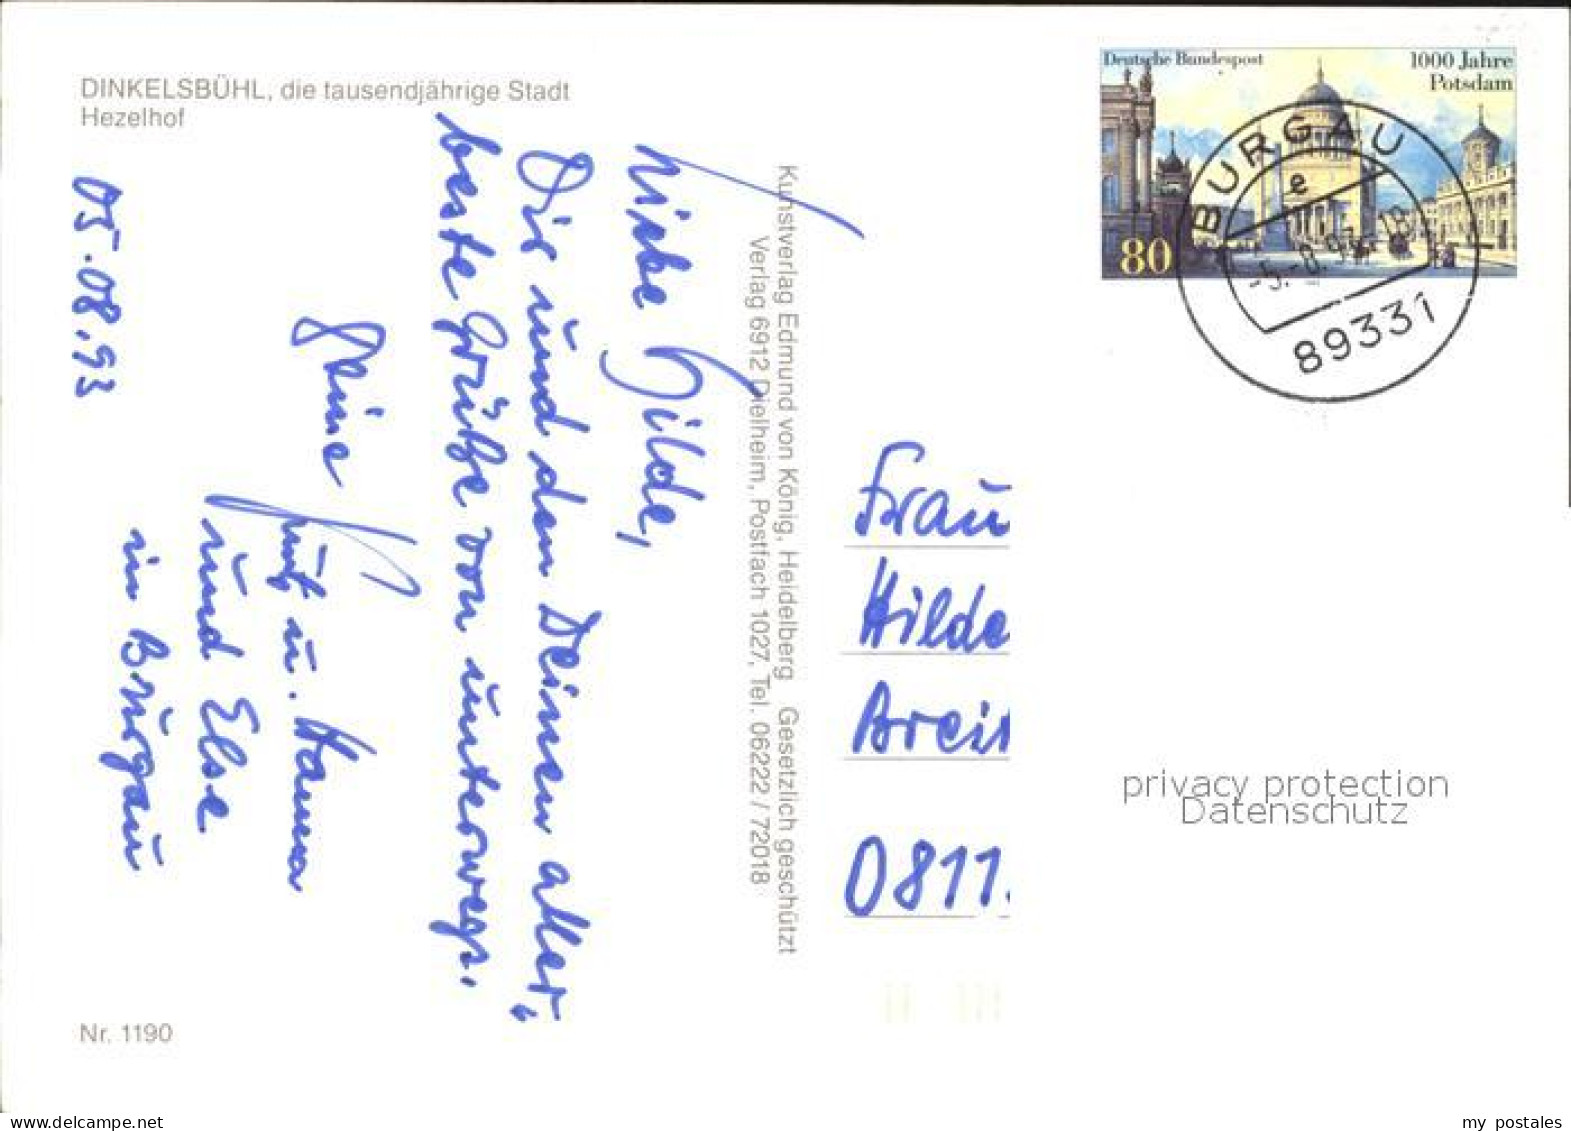 DINKELSBÜHL, die tausendjährige Stadt
Hezelhof
05.08.93
Liebe Hilde,
Dir und den Deinen aller-
beste Grüße von unterwegs.
Deine
u. Hanna
und Else
in Burgau
Kunstverlag Edmund von König, Heidelberg Gesetzlich geschützt
Verlag 6912 Dielheim, Postfach 1027, Tel. 06222 / 72018
Nr. 1190
Deutsche Bundespost
1000 Jahre
Potsdam
80
BURGAU
e
-5.-8.93-18
89331
Frau
Hilde
Breit
0811
privacy protection
Datenschutz
delcampe.net
my_postales